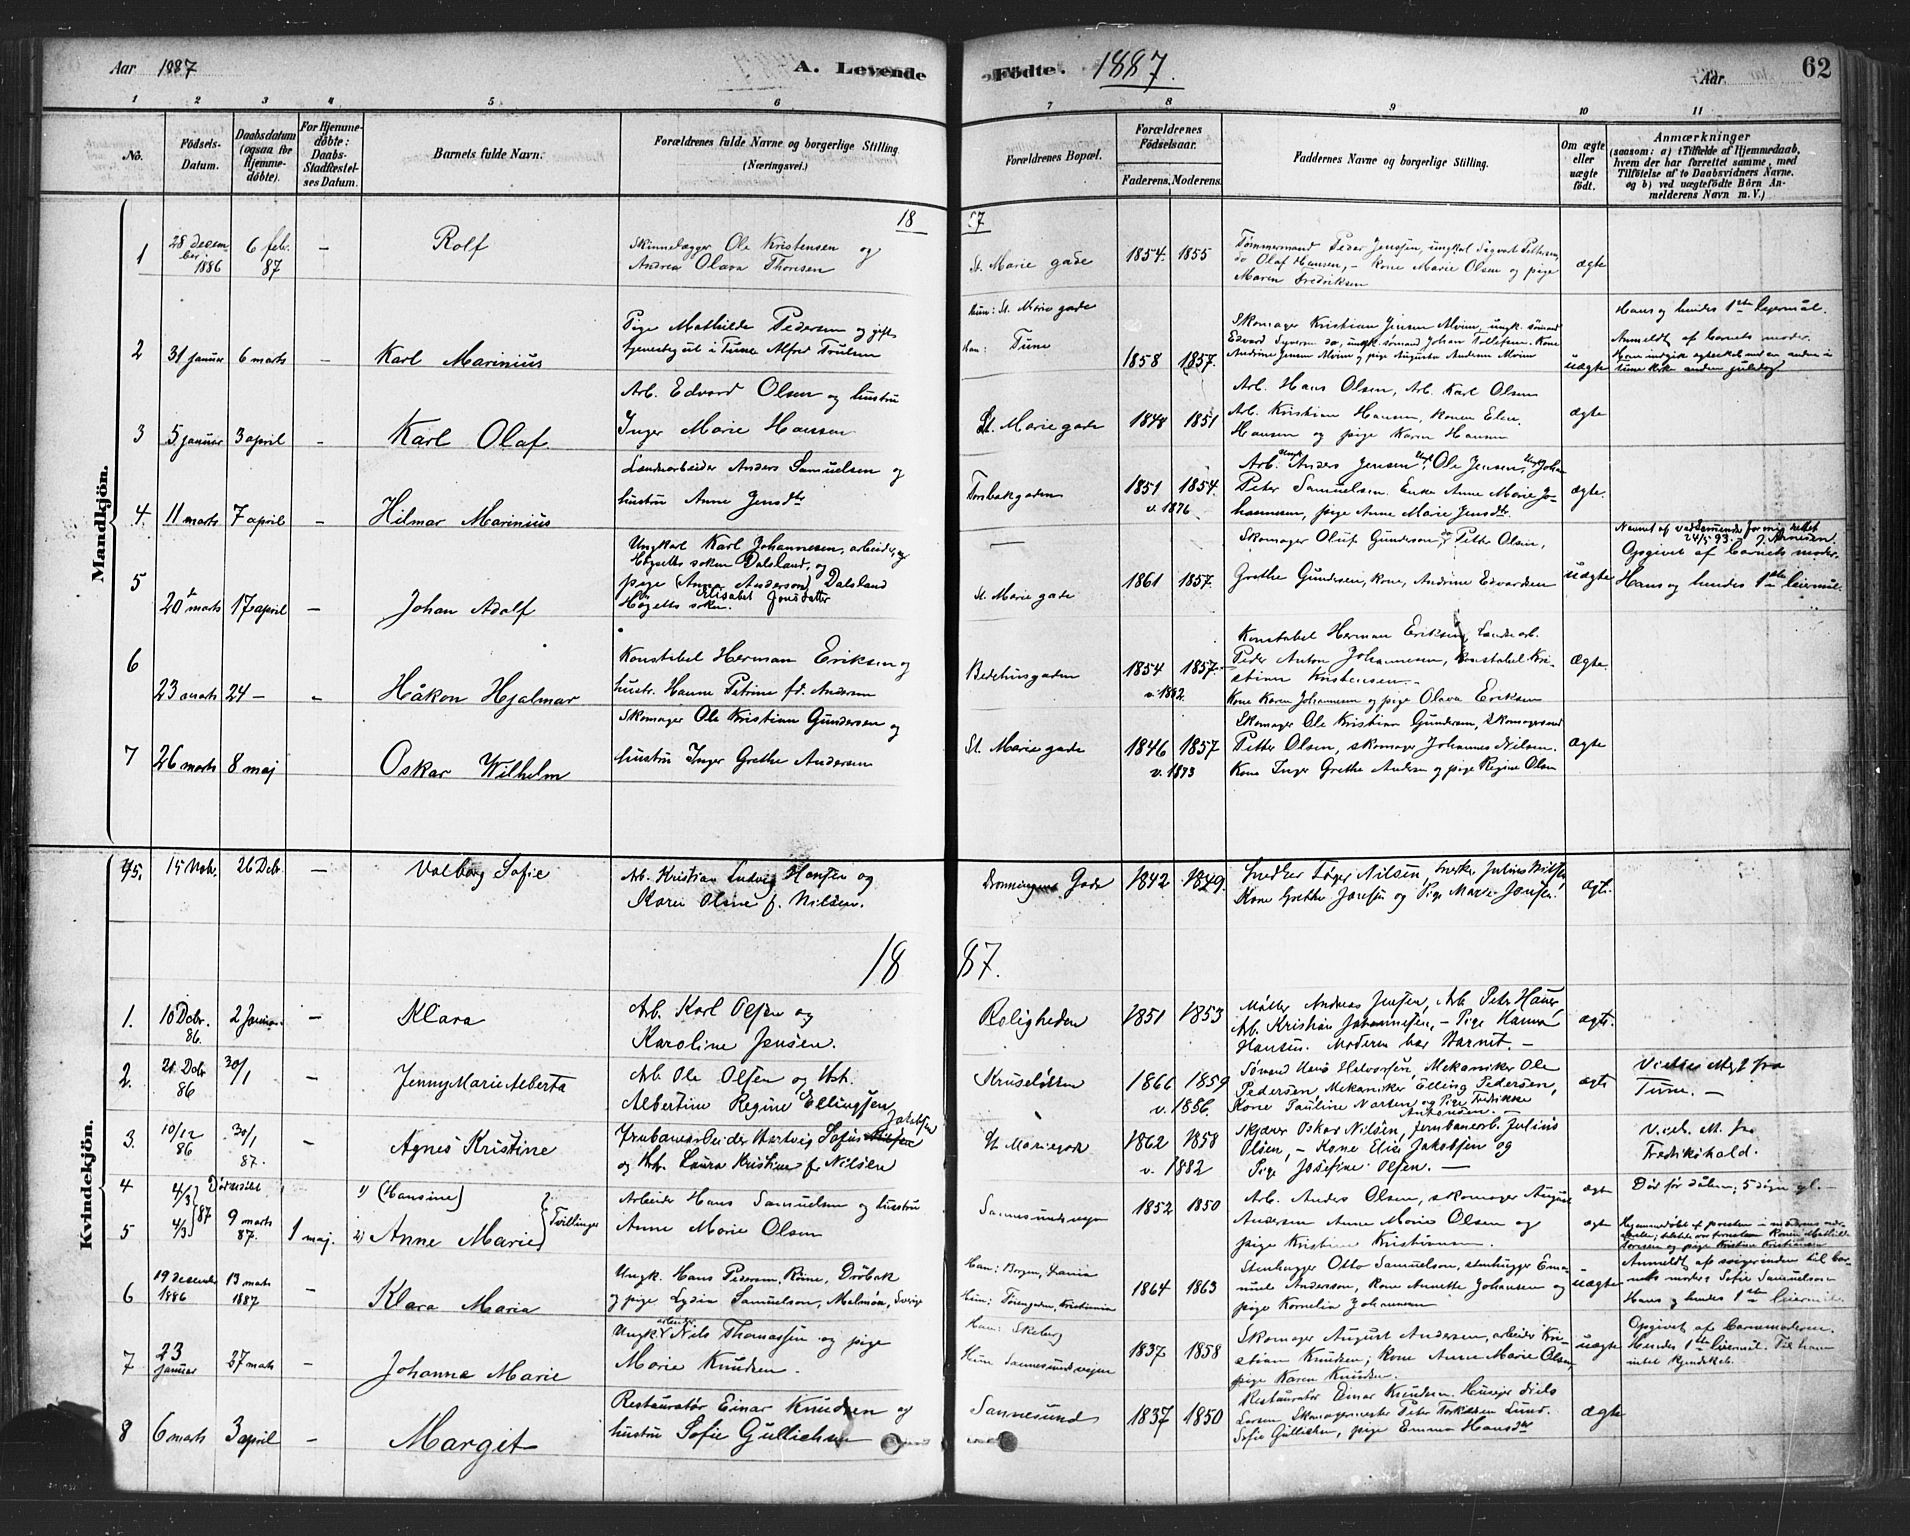 Aar 1887
A. Levende
Fødte. 1887.
Aar.
62
1 2 3 4 5 6 7 8 9 10 11
No.
Fødsels-
Datum.
Daabsdatum
(ogsaa for
Hjemme-
døbte).
For Hjemme-
døbte:
Daabs-
Stadfæstel-
ses Datum.
Barnets fulde Navn.
Forældrenes fulde Navne og borgerlige Stilling
(Næringsvei.)
Forældrenes Bopæl.
Forældrenes
Fødselsaar.
Faderens. Moderens.
Faddernes Navne og borgerlige Stilling.
Om ægte
eller
uægte
født.
Anmærkninger
(saasom: a) i Tilfælde af Hjemmedaab,
hvem der har forrettet samme, med
Tilføielse af to Daabsvidners Navne.
og b) ved uægtefødte Børn An-
melderens Navn m. V.)
Mandkjön.
18 87
1 28 decem-
ber 1886 6 feb. 87 – Rolf
Skinnelægger Ole Kristensen og
Andrea Olava Thoresen
St. Marie gade 1854. 1855
Tømmermand Peder Jenssen, ungkal Sigvart Pettersen,
do Olaf Hansen, – Kone Marie Olsen og pige
Maren Fredriksen
ægte
2 31 januar 6 marts – Karl Marinius
Pige Mathilde Pedersen og gift
i Tune Alfred
hun: St. Marie gade
Han: Tune
1858 1857.
Skomager Kristian Jensen Alvim, ungk. sømand
Edvard do, ungk. sømand Johan Tollefsen. Kone
Andrine Jensen Alvim og pige Augusta Andersen Alvim
uægte
Hans og hendes 1ste leiermål.
Anmeldt af barnets moder.
3 5 januar 3 april – Karl Olaf
Arb. Edvard Olsen og hustru
Inger Marie Hansen
St. Marie gade 1848 1851
Arb. Hans Olsen, Arb. Karl Olsen
Arb. Kristian Hansen, konen Elen
Hansen og pige Karen Hansen
ægte
4. 11 marts 7 april – Hilmar Marinius
Landarbeider Anders Samuelsen og
hustru Anne Jensdtr
Torsbakgaden 1851 1854.
v. 1876
Arb. Anders Jensen, Ole Jensen, Johan
Peter Samuelsen. Enke Anne Marie Jo-
hannesen, pige Anne Marie Jensdtr.
ægte.
5 20 marts 17 april – Johan Adolf
Ungkarl Karl Johannesen, arbeider, og
Høgsetts soken Dalsland, og
pige (Anna Anderson) Dalsland
Elisabet Jonsdatter
Høgetts soken.
—
St. Marie gade 1861 1857.
Skomager Oluf Gundersen, do Petter Olsen,
Grethe Gundersen, kone, Andrine Edvardsen
uægte
24/5 93.
Opgivet af barnets moder.
Hans og hendes 1ste leiermål.
6 23 marts 24 – – Håkon Hjalmar
Konstabel Herman Eriksen og
hustr. Hanne Petrine fd. Andersen
Bedehusgaden 1854 1857.
v. 1882.
Konstabel Herman Eriksen, Landarb.
Peder Anton Johannesen, konstabel Kri-
stian Kristensen –
Kone Karen Johannesen og pige Olava Eriksen
Ægte
7 26 marts 8 maj Oskar Wilhelm
Skomager Ole Kristian Gundersen og
hustru Inger Grethe Andersen
St. Marie gade 1846 1857
v. 1873
Skomager Ole Kristian Gundersen, skomagersvend
Petter Olsen, skomager Johannes Nilsen.
Kone Inger Grethe Andersen og pige Regine Olsen
Ægte
Kvindekjön.
45. 15 Nov. 26 Debr – Valborg Sofie
Arb. Kristian Ludvig Hansen og
Karen Oline f. Nilsen.
Dronningens Gade 1842 1849.
Snedker Nilsen, Snedker Julius Nilsen,
Kone Grethe Jensen og Pige Marie Jensen.
ægte
18 87.
1. 10 Debr. 86. 2 Januar. – Klara
Arb. Karl Olsen og
Karoline Jensen.
Roligheden 1851 1853
Møller Andreas Jensen, Arb. Peter Hansen,
Arb. Kristian Johannesen, – Pige Hanna
Hansen. Moderen bar Barnet. –
ægte.
2. 21 Debr 86 30/1 – Jenny Marie Alberta
Arb. Ole Olsen og Hst.
Albertine Regine Ellingsen
Kruseløkken 1866 1859
v. 1886.
Sømand Hans Halvorsen, Mekaniker Ole
Pedersen, Mekaniker Elling Pedersen,
Kone Pauline Narsen og Pige Fredrikke
Antonsen. –
ægte
Vielses Att fra
Tune. –
3. 10/12 86 30/1 87. – Agnes Kristine
Jernbanearbeider Hartvig Sofus Jakobsen
og Hst. Laura Kristine f. Nilsen
St. Mariegade 1862 1858
v. 1882
Skjærer Oskar Nilsen, Jernbanearb. Julius
Olsen, – Kone Elise Jakobsen og
Pige Josefine Olsen. –
Viels. Att. fra
Fredrikshald.
4 4/3 87 1) (Hansine)
5 4/3 9 marts 87. 1 maj. 2) Anne Marie Tvillinger
Arbeider Hans Samuelsen og hustru
Anne Marie Olsen
Sannesundsvejen 1852 1850
Arb. Anders Olsen, skomager August
Andersen Anne Marie Olsen og
pige Kristine Kristiansen.
ægte
ægte
Død før dåben; 5 døgn gl. –
6 19 december 1886 13 marts 1887 – Klara Maria
Ungk. Hans Pedersen, Drøbak
og pige Lydia Samuelson, Malmøn, Sverige
1864 1863
Stenhugger Otto Samuelson, stenhugger Ema-
nuel Anderson, Kone Annette Johansen og
pige Kornelia Johannesen
uægte
Anmeldt af svigerinden til bar-
nets moder Sofie Samuelsen
Hans og hendes 1ste leiermål.
7 23 januar 27 marts – Johanne Marie
Ungk. arbeider Nils Thomassen og pige
Marie Knudsen.
Han: Skeberg
Hun Sannesundsvejen
1837 1858
Skomager August Andersen, arbeider Kri-
stian Knudsen; Kone Anne Marie Olsen,
pige Karen Knudsen.
uægte
Opgivet af barnemoderen.
Hendes 1ste leiermål. Til ham
intet kjendskab.
8 6 marts 3 april – Margit
Restauratør Einar Knudsen og
hustru Sofie Gullichsen
Sannesund 1837 1850
Restauratør Einar Knudsen. Husejer Niels
Larsen Skomagermester Peter Torkildsen Lund.
Sofie Gullichsen, pige Emma Hansdtr
ægte